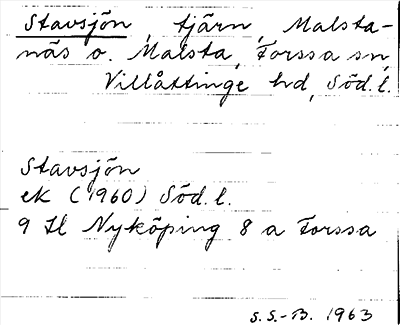 Stavsjön, tjärn, Malsta-
näs o. Malsta, Forssa sn,
Villåttinge hd, Söd. l.
Stavsjön
ek (1960) Söd. l.
9 H Nyköping 8 a Forssa
S. S.-B. 1963